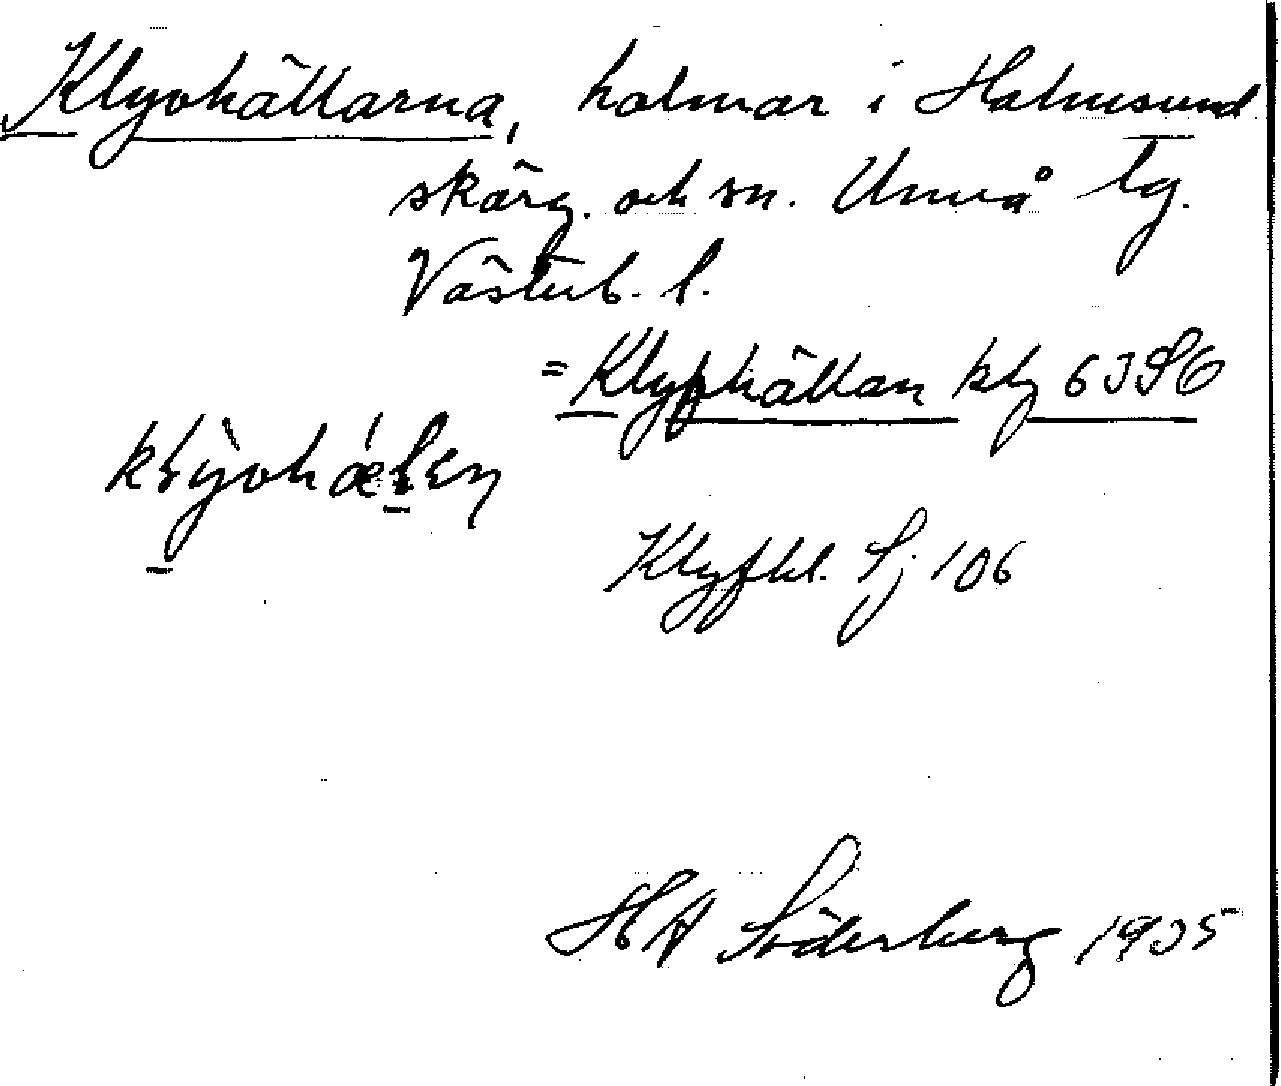 Klyvhällarna, holmar i Holmsund
skärg. och sn. Umeå tg.
Västerb. l.
= Klyphällan kbl 63 SO
klỳvhǽlen
Klyfhl. Sj 106
HA Söderberg 1935